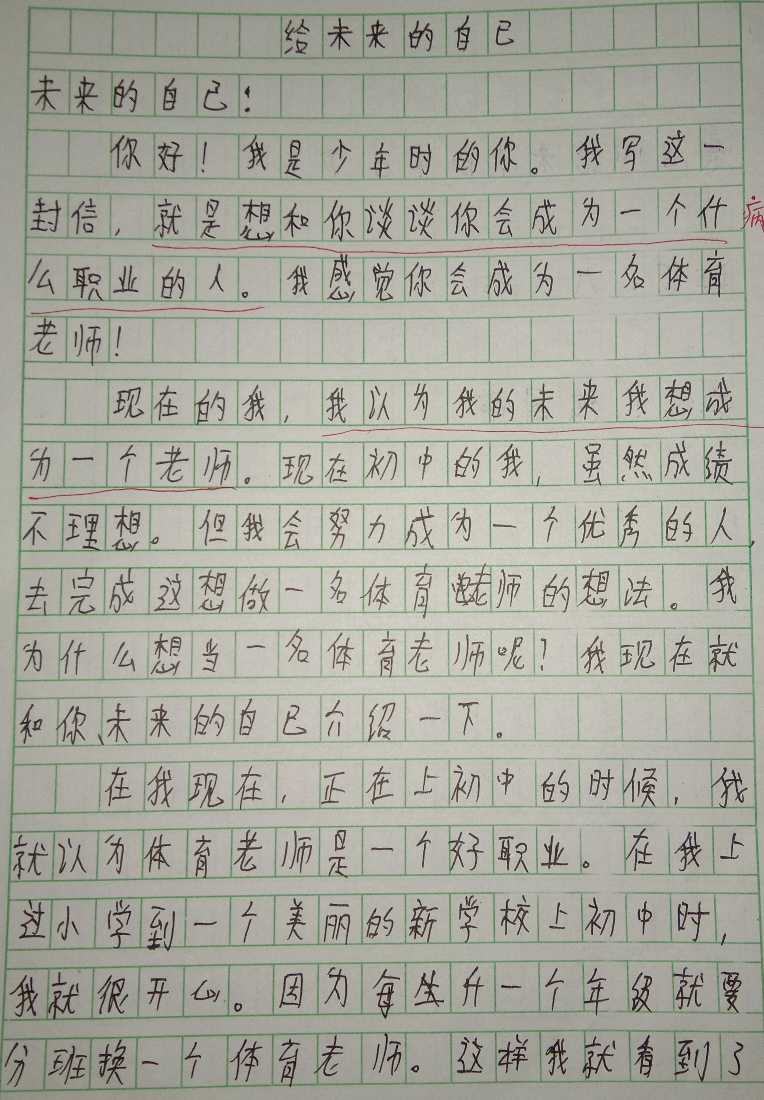 给未来的自己
未来的自己：
你好！我是少年时的你。我写这一
封信，就是想和你谈谈你会成为一个什
病
么职业的人。我感觉你会成为一名体育
老师！
现在的我，我以为我的未来我想成
为一个老师。现在初中的我，虽然成绩
不理想。但我会努力成为一个优秀的人，
去完成这想做一名体育老师的想法。我
为什么想当一名体育老师呢？我现在就
和你、未来的自己介绍一下。
在我现在，正在上初中的时候，我
就以为体育老师是一个好职业。在我上
过小学到一个美丽的新学校上初中时，
我就很开心。因为每升一个年级就要
分班换一个体育老师。这样我就看到了